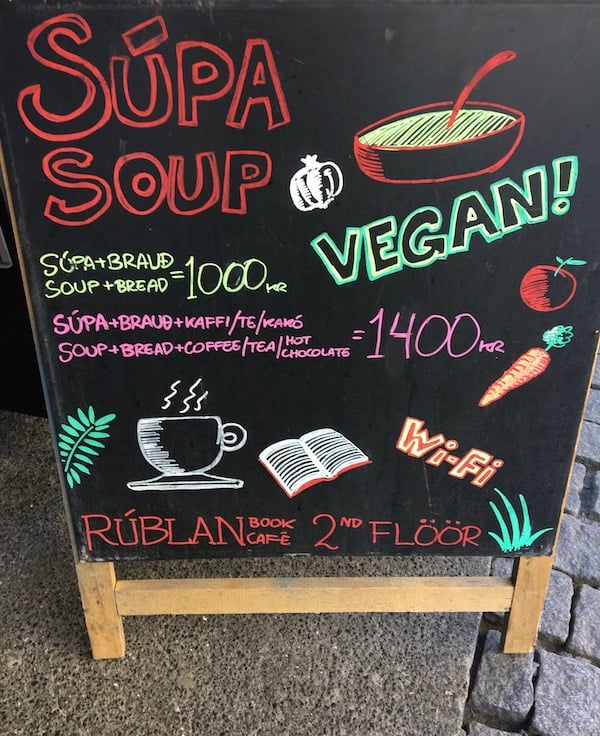 SÚPA
SOUP
VEGAN!
SÚPA+BRAUÐ
SOUP+BREAD =1000 KR
SÚPA+BRAUÐ+KAFFI/TE/KAKÓ
SOUP+BREAD+COFFEE/TEA/HOT CHOCOLATE =1400 KR
Wi-Fi
RÚBLAN BOOK CAFÉ 2ND FLÖÖR